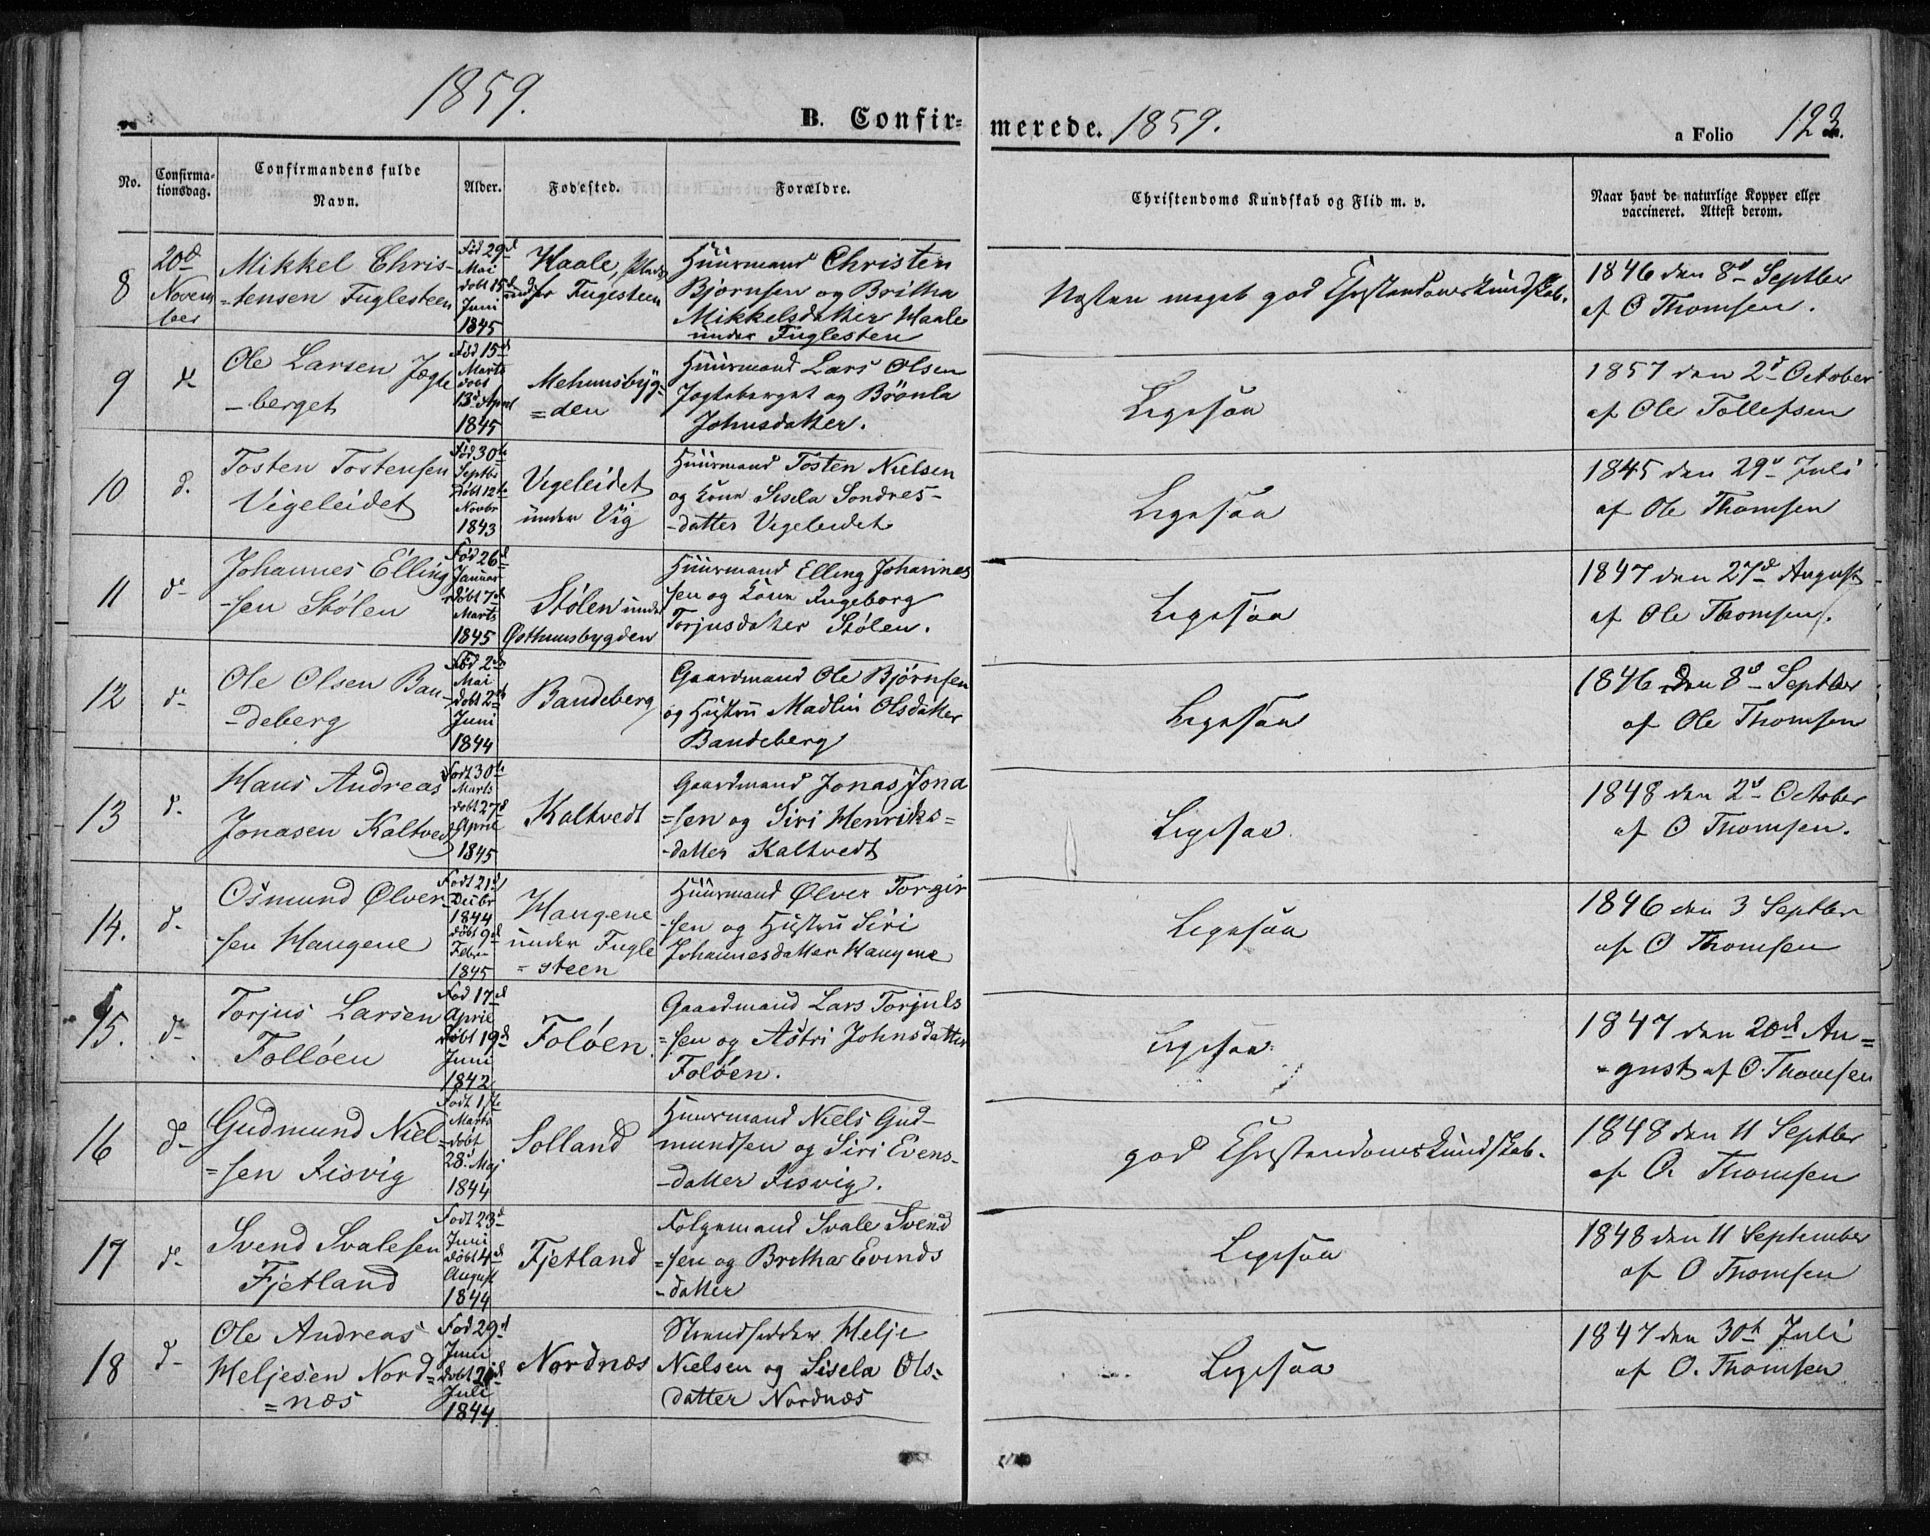 1859.
B. Confirmerede. 1859.
a Folio 123.
No.
Confirmationsdag.
Confirmandens fulde Navn.
Alder.
Fødested.
Forældre.
Christendoms Kundskab og Flid m. v.
Naar havt de naturlige Kopper eller vaccineret. Attest derom.
8
20d
November
Mikkel Chris-
-tensen Fuglesteen
Fød 29d
Mai
døbt 15d
Juni
1845
Haale, Plads
under Fuglesteen
Huusmand Christen
Bjørnsen og Britha
Mikkelsdatter Haale
under Fuglesten
Næsten meget god Christendomskundskab.
1846 den 8d Septber
af O Thomsen.
9
d
Ole Larsen Jøgle
-berget
Fød 15d
Marts
døbt
13d April
1845
Mehuusbyg-
=den
Huusmand Lars Olsen
Jogleberget og
Johnsdatter.
Ligesaa
1857 den 2d October
af Ole Tollefsen
10
d.
Tosten Tostensen
Vigeleidet
Fød 30te
Septbr
Døbt 12te
Novbr
1843
Vigeleidet
under Vig
Huusmand Tosten Nielsen
og Kone Sisela Sondres-
-datter Vigeleidet
Ligesaa
1845 den 29d Juli
af Ole Thomsen
11
d-
Johannes Elling
-sen Stølen
Fød 26d
Januar
døbt 7d
Marts
1845
Stølen under
Østhuusbygden
Huusmand Elling Johannes
sen og Kone Ingeborg
Torjusdatter Stølen.
Ligesaa
1847 den 27d August
af Ole Thomsen.
12
d-
Ole Olsen Ban
-deberg
Fød 2d
Mai
døbt 2d
Juni
1844
Bandeberg
Gaardmand Ole Bjørnsen
og Hustru Madlin Olsdatter
Bandeberg
Ligesaa
1846 den 8d Septber
af Ole Thomsen
13
d.
Hans Andreas
Jonasen Kaltvedt
Født 30te
Marts
døbt 27d
April
1845
Kaltvedt
Gaardmand Jonas Jona
=sen og Siri Henriks=
-datter Kaltvedt
Ligesaa.
1848 den 2d October
af O Thomsen.
14.
d-
Osmund Ølver
sen Haugene
Født 21d
Decbr
1844
døbt 9d
Febr
1845
Haugene
under Fugle
=steen
Huusmand Ølver Torgir
-sen og Hustru Siri
Johannesdatter Haugene
Ligesaa
1846 den 3 Septber
af O Thomsen
15.
d-
Torjus Larsen
Folløen
Fød 17d
April
døbt 19d
Juni
1842
Foløen
Gaardmand Lars Torjuls
=sen og Astri Johnsdatter
Foløen.
Ligesaa
1847 den 20d Au=
=gust af O. Thomsen
16
d-
Gudmund Niel=
=sen Fisvig
Født 17te
Marts
døbt
28d Maj
1844
Solland
Huusmand Niels Gud-
mundsen og Siri Evens-
-datter Fisvig.
god Christendomskundskab.
1848 den 11 Septber
af O. Thomsen
17
d-
Svend Svalesen
Fjetland
Født 23d
Juni
døbt 4d
August
1844
Fjetland
Folgemand Svale Svend
=sen og Britha Evinds
-datter
Ligesaa
1848 den 11 September
af O Thomsen
18
d-
Ole Andreas
Heljesen Nord=
=næs
Fød 29d
Juni
døbt 21d
Juli
1844
Nordnæs
Strandsidder Helje
Nielsen og Sisela Ols-
datter Nordnæs
Ligesaa
1847 den 30te Juli
af O. Thomsen